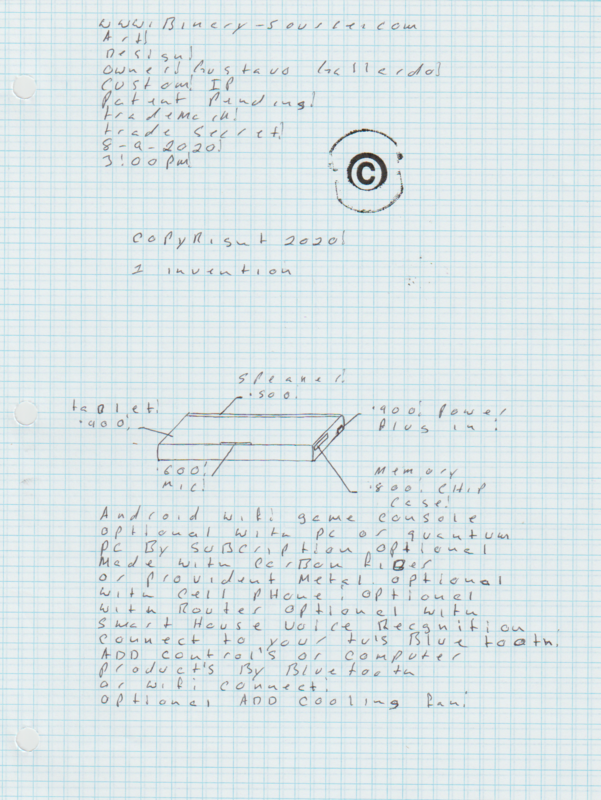 www.Binary-Source.com
Art!
Design!
Owner! Gustavo Gallardo!
Custom IP
Patent Pending!
trademark!
trade secret!
8-9-2020!
3:00 pm
©
CopyRight 2020!
1 invention
Speaker!
.500!
tablet!
.400!
.900! Power
Plug in!
.600!
mic!
Memory
.800! Chip
Case!
Android wifi game console
optional with pc or quantum
pc By SuBcription optional
Made with CarBon FiBer
or provident Metal optional
with Cell pHone! optional
with Router optional with
Smart House Voice Recgnition
Connect to your tv's Bluetooth.
ADD control's or computer
product's By Bluetooth
or wifi connect!
optional ADD cooling Fan!